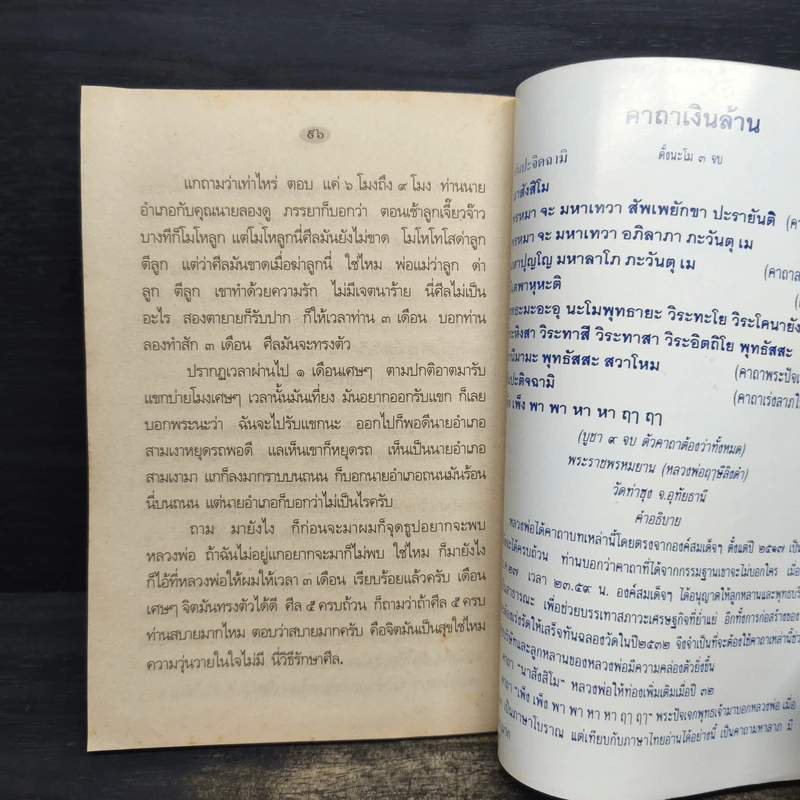 ๙๖
แกถามว่าเท่าไหร่ ตอบ แค่ ๖ โมงถึง ๙ โมง ท่านนาย
อำเภอกับคุณนายลองดู ภรรยาก็บอกว่า ตอนเช้าลูกเจี๊ยวจ๊าว
บางทีก็โมโหลูก แต่โมโหลูกนี่ศีลมันยังไม่ขาด โมโหโทโสด่าลูก
ตีลูก แต่ว่าศีลมันขาดเมื่อฆ่าลูกนี่ ใช่ไหม พ่อแม่ว่าลูก ด่า
ลูก ตีลูก เขาทำด้วยความรัก ไม่มีเจตนาร้าย นี่ศีลไม่เป็น
อะไร สองตายายก็รับปาก ก็ให้เวลาท่าน ๓ เดือน บอกท่าน
ลองทำสัก ๓ เดือน ศีลมันจะทรงตัว
ปรากฏเวลาผ่านไป ๑ เดือนเศษๆ ตามปกติอาตมารับ
แขกบ่ายโมงเศษๆ เวลานั้นมันเที่ยง มันอยากออกรับแขก ก็เลย
บอกพระนะว่า ฉันจะไปรับแขกนะ ออกไปก็พอดีนายอำเภอ
สามเงาหยุดรถพอดี แลเห็นเขาก็หยุดรถ เห็นเป็นนายอำเภอ
สามเงามา แกก็ลงมากราบบนถนน ก็บอกนายอำเภอถนนมันร้อน
นี่บนถนน แต่นายอำเภอก็บอกว่าไม่เป็นไรครับ
ถาม มายังไง ก็ก่อนจะมาผมก็จุดธูปอยากจะพบ
หลวงพ่อ ถ้าฉันไม่อยู่แกอยากจะมาก็ไม่พบ ใช่ไหม ก็มายังไง
ก็ไอ้ที่หลวงพ่อให้ผมให้เวลา ๓ เดือน เรียบร้อยแล้วครับ เดือน
เศษๆ จิตมันทรงตัวได้ดี ศีล ๕ ครบถ้วน ก็ถามว่าถ้าศีล ๕ ครบ
ท่านสบายมากไหม ตอบว่าสบายมากครับ คือจิตมันเป็นสุขใช่ไหม
ความวุ่นวายในใจไม่มี นี่วิธีรักษาศีล.
คาถาเงินล้าน
ตั้งนะโม ๓ จบ
ปะอิตฉามิ
นาสังสิโม
พรหมา จะ มหาเทวา สัพเพยักขา ปะรายันติ (คา
พรหมา จะ มหาเทวา อภิลาภา ภะวันตุ เม
มหาปุญโญ มหาลาโภ ภะวันตุ เม (คาถาล
เตพาหุหะติ
พระมะอะอุ นะโมพุทธายะ วิระทะโย วิระโคนายัง
วิระหิงสา วิระทาสี วิระทาสา วิระอิตถิโย พุทธัสสะ
มานีมามะ พุทธัสสะ สวาโหม (คาถาพระปัจเ
ปะติจฉามิ (คาถาเร่งลาภใ
เพ็ง เพ็ง พา พา หา หา ฤๅ ฤๅ
(บูชา ๙ จบ ตัวคาถาต้องว่าทั้งหมด)
พระราชพรหมยาน (หลวงพ่อฤๅษีลิงดำ)
วัดท่าซุง จ.อุทัยธานี
คำอธิบาย
หลวงพ่อได้คาถาบทเหล่านี้โดยตรงจากองค์สมเด็จฯ ตั้งแต่ปี ๒๕๑๗ เป็น
จะได้ครบถ้วน ท่านบอกว่าคาถาที่ได้จากกรรมฐานเขาจะไม่บอกใคร เมื่อ
๒๗ เวลา ๒๓.๕๙ น. องค์สมเด็จฯ ได้อนุญาตให้ลูกหลานและพุทธบริ
สาธารณะ เพื่อช่วยบรรเทาสภาวะเศรษฐกิจที่ย่ำแย่ อีกทั้งการก่อสร้างของ
ต้องเร่งรัดให้เสร็จทันฉลองวัดในปี๒๕๓๒ จึงจำเป็นที่จะต้องใช้คาถาเหล่านี้ช่วย
ษัทและลูกหลานของหลวงพ่อมีความคล่องตัวยิ่งขึ้น
คาถา "นาสังสิโม" หลวงพ่อให้ท่องเพิ่มเติมเมื่อปี ๓๒
คาถา "เพ็ง เพ็ง พา พา หา หา ฤๅ ฤๅ" พระปัจเจกพุทธเจ้ามาบอกหลวงพ่อ เมื่อ
เป็นภาษาโบราณ แต่เทียบกับภาษาไทยอ่านได้อย่างนี้ เป็นคาถามหาลาภ มี